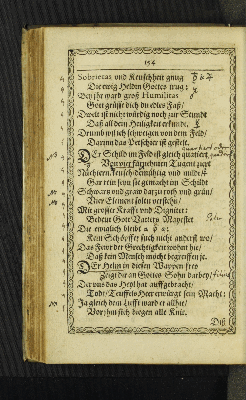 154
Sobrietas und Keuschheit gnug
Die ewig Helden Gottes trug:
Bey ihr ward groß Humilitas
Gott grüsse dich du edles Faß/
Die Welt ist nicht würdig noch zur Stundt
Daß all dein Heiligkeit erkundt.
Drumb wil ich schweigen von dem Feld/
Darinn das Petschier ist gestelt.
DEr Schild im Feld ist gleich quatiert
Von vier fürnehmen Tugent ziert
Nüchtern keusch demühtig und mild
Gar rein seyn sie gemacht im Schildt
Schwartz und graw darzu roth und grün/
Vier Element soltu verstehn/
Mit grosser Krafft und Dignitet:
Bedeut Gott Vatters Mayestet
Die ewiglich bleibt
Kein Schöpffer such nicht anderst wo/
Das Fewr der Gerechtigkeit wohnt hie/
Daß kein Mensch möcht begreiffen je.
DEr Helm in diesen Wappen frey
Zeigt die an Gottes Sohn darbey/
Der uns das Heyl hat auffgebracht/
Todt/Teuffels Heer erwürgt sein Macht:
Ja gleich dem Lufft ward er allhie/
Vor ihm sich biegen alle Knie.
Diß